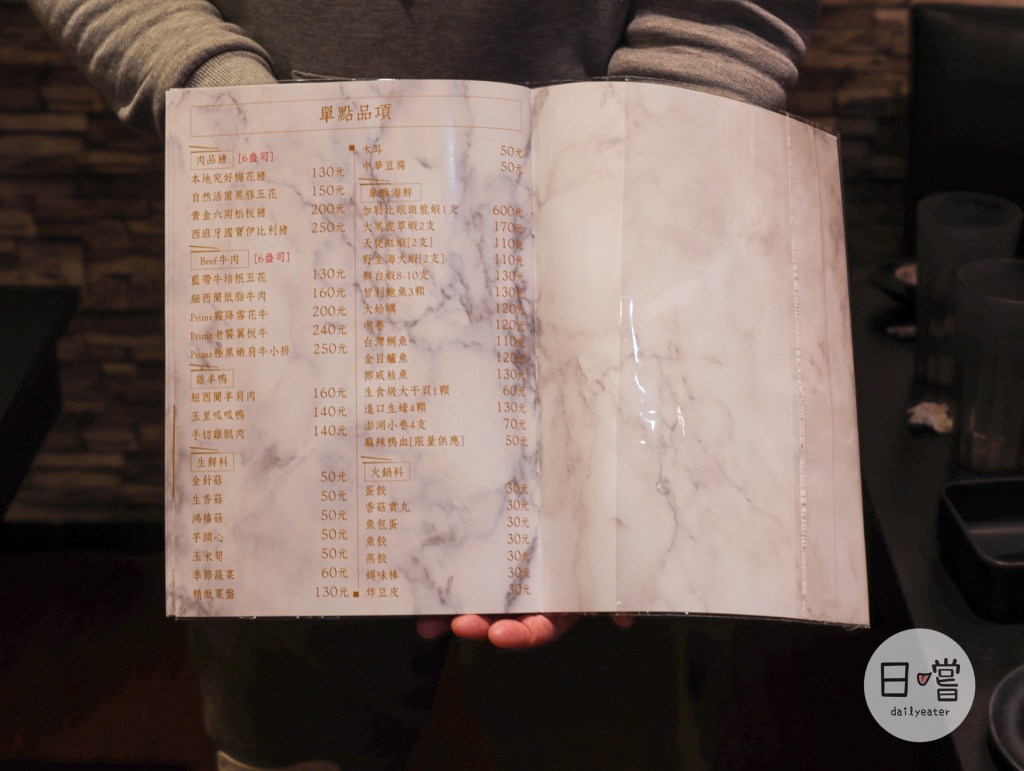 單點品項
肉品豬 [6盎司]
本地究好梅花豬 130元
自然活菌黑豚五花 150元
黃金六兩松板豬 200元
西班牙國寶伊比利豬 250元
Beef牛肉 [6盎司]
藍帶牛培根五花 130元
紐西蘭低脂牛肉 160元
Prime霜降雪花牛 200元
Prime老饕翼板牛 240元
Prime極黑嫩肩牛小排 250元
雞羊鴨
紐西蘭羊肩肉 160元
玉里呱呱鴨 140元
手切雞腿肉 140元
生鮮料
金針菇 50元
生香菇 50元
鴻禧菇 50元
芋頭心 50元
玉米筍 50元
季節蔬菜 60元
精緻菜盤 130元
木耳 50元
中華豆腐 50元
單點海鮮
加勒比眼斑龍蝦1支 600元
大黑虎單蝦2支 170元
天使紅蝦[2支] 110元
野生海大蝦[2支] 110元
鮮白蝦8-10支 130元
智利鮑魚3顆 130元
大蛤蠣 120元
中卷 120元
台灣鯛魚 110元
金目鱸魚 120元
挪威鮭魚 130元
生食級大干貝1顆 60元
進口生蠔4顆 130元
澎湖小卷4支 70元
麻辣鴨血[限量供應] 50元
火鍋料
蛋餃 30元
香菇貢丸 30元
魚包蛋 30元
魚餃 30元
燕餃 30元
蟳味棒 30元
炸豆皮 30元
日嚐
dailyeater